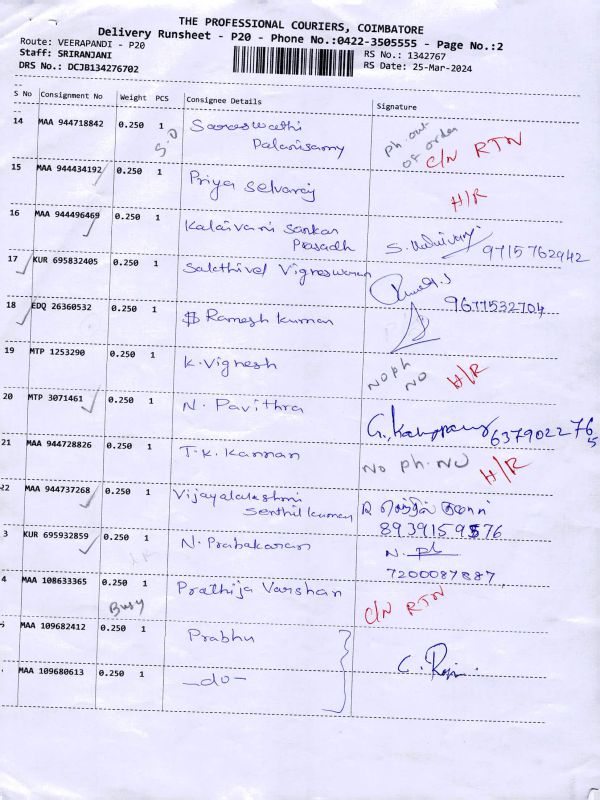 THE PROFESSIONAL COURIERS, COIMBATORE
Delivery Runsheet - P20 - Phone No.:0422-3505555 - Page No.:2
Route: VEERAPANDI - P20
Staff: SRIRANJANI
DRS No.: DCJB134276702
RS No.: 1342767
RS Date: 25-Mar-2024
S No Consignment No Weight PCS Consignee Details Signature
14 MAA 944718842 0.250 1 Sareswathi Ph. out
S.O Palanisamy of order C/N RTN
15 MAA 944434192 0.250 1 Priya Selvaraj H/R
16 MAA 944496469 0.250 1 Kalaivani Sankar
Prasadh S. 9715762942
17 KUR 695832405 0.250 1 Sakthivel Vigneswaran
9677532704
18 EDQ 26360532 0.250 1 Ramesh kumar
19 MTP 1253290 0.250 1 K. Vignesh No ph
NO H/R
20 MTP 3071461 0.250 1 N. Pavithra G. 6379022765
21 MAA 944728826 0.250 1 T.K. Kannan No ph. NO H/R
22 MAA 944737268 0.250 1 Vijayalakshmi R
Senthil kumar 8939159576
3 KUR 695932859 0.250 1 N. Prabakaran N.
7200087887
4 MAA 108633365 0.250 1 Prathija Varshan C/N RTN
Busy
5 MAA 109682412 0.250 1 Prabhu
MAA 109680613 0.250 1 -do- C.